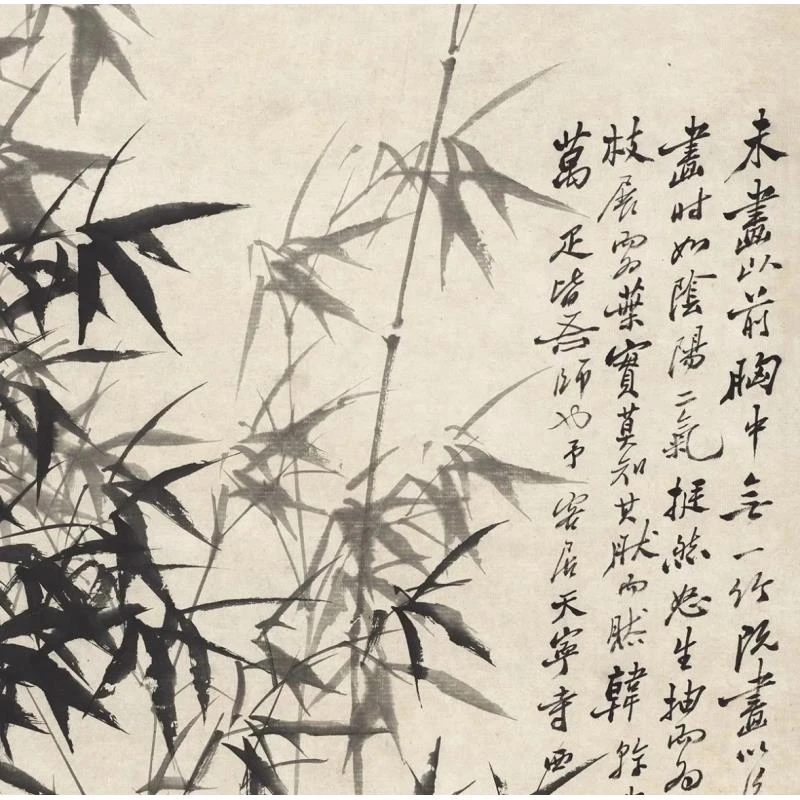 未畫以前胸中無一竹既畫以
畫时如陰陽二氣挺然怒生抽而為
枝展而為葉實莫知其然而然韓幹
萬疋皆吾師也予客居天寧寺西